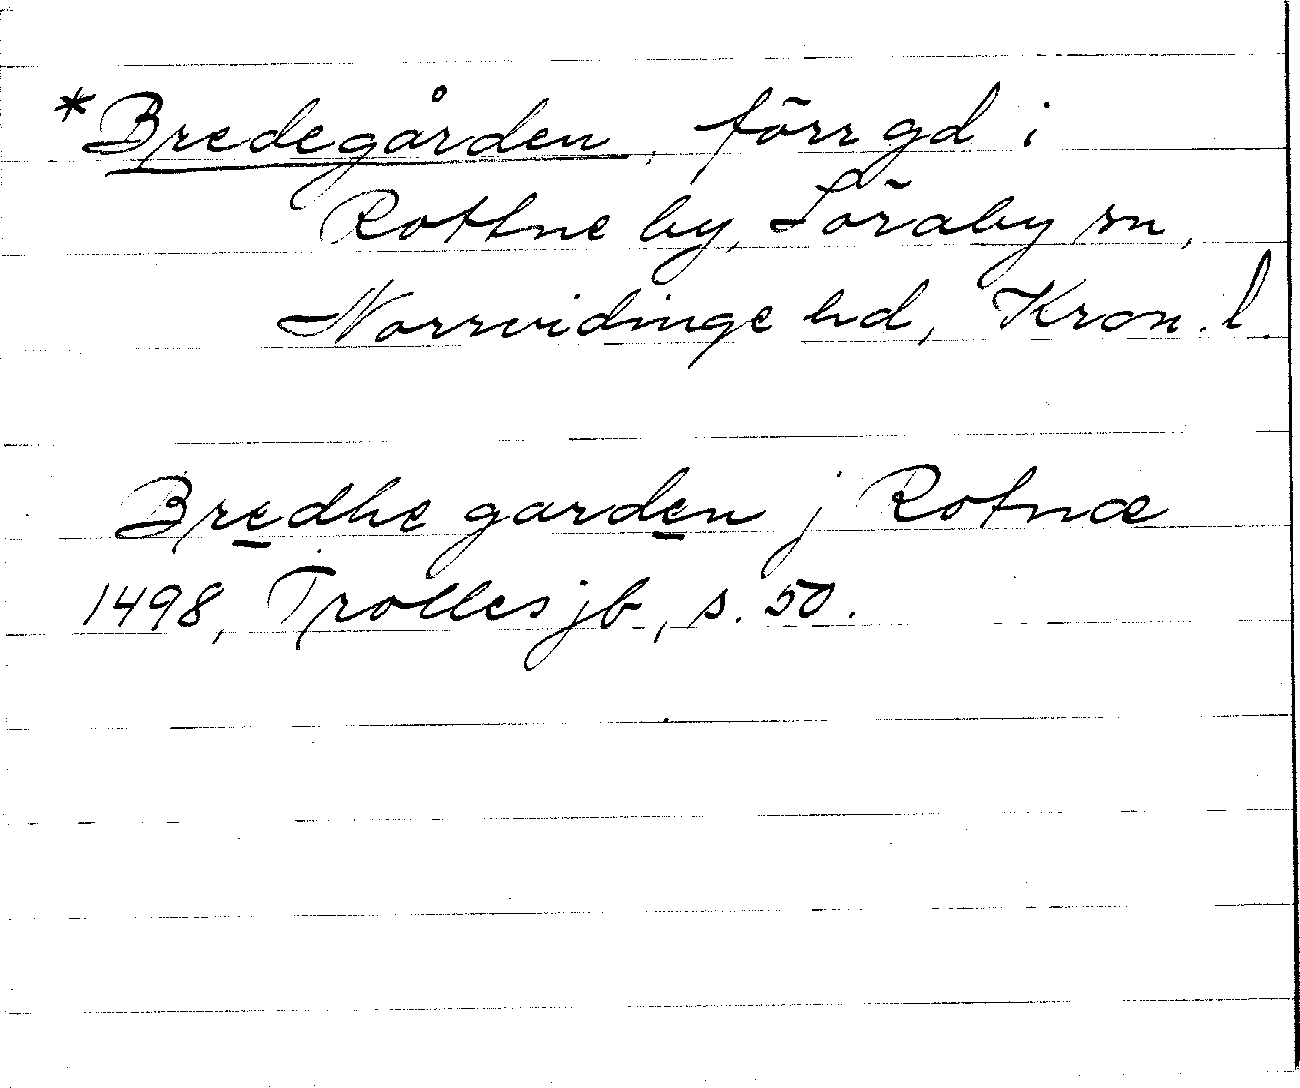 *Bredegården, förr gd i
Rottne by, Söraby sn,
Norrvidinge hd, Kron. l.
Bredhe garden j Rotnæ
1498, Trolles jb, s. 50.